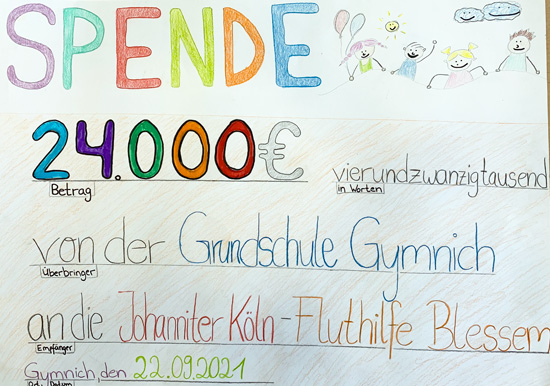 SPENDE
24.000€ vierundzwanzigtausend
Betrag in Worten
von der Grundschule Gymnich
Überbringer
an die Johanniter Köln-Fluthilfe Blessem
Empfänger
Gymnich, den 22.09.2021
Ort, Datum